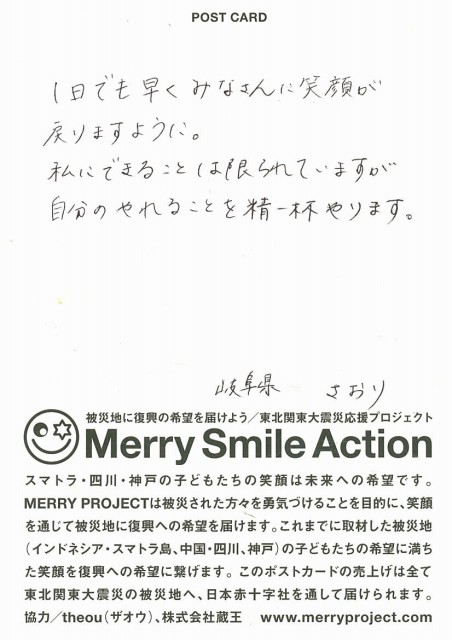 POST CARD
1日でも早くみなさんに笑顔が
戻りますように。
私にできることは限られていますが
自分のやれることを精一杯やります。
岐阜県 さおり
被災地に復興の希望を届けよう/東北関東大震災応援プロジェクト
Merry Smile Action
スマトラ・四川・神戸の子どもたちの笑顔は未来への希望です。
MERRY PROJECTは被災された方々を勇気づけることを目的に、笑顔
を通じて被災地に復興への希望を届けます。これまでに取材した被災地
(インドネシア・スマトラ島、中国・四川、神戸)の子どもたちの希望に満ち
た笑顔を復興への希望に繋げます。このポストカードの売上げは全て
東北関東大震災の被災地へ、日本赤十字社を通して届けられます。
協力/theou(ザオウ)、株式会社蔵王 www.merryproject.com